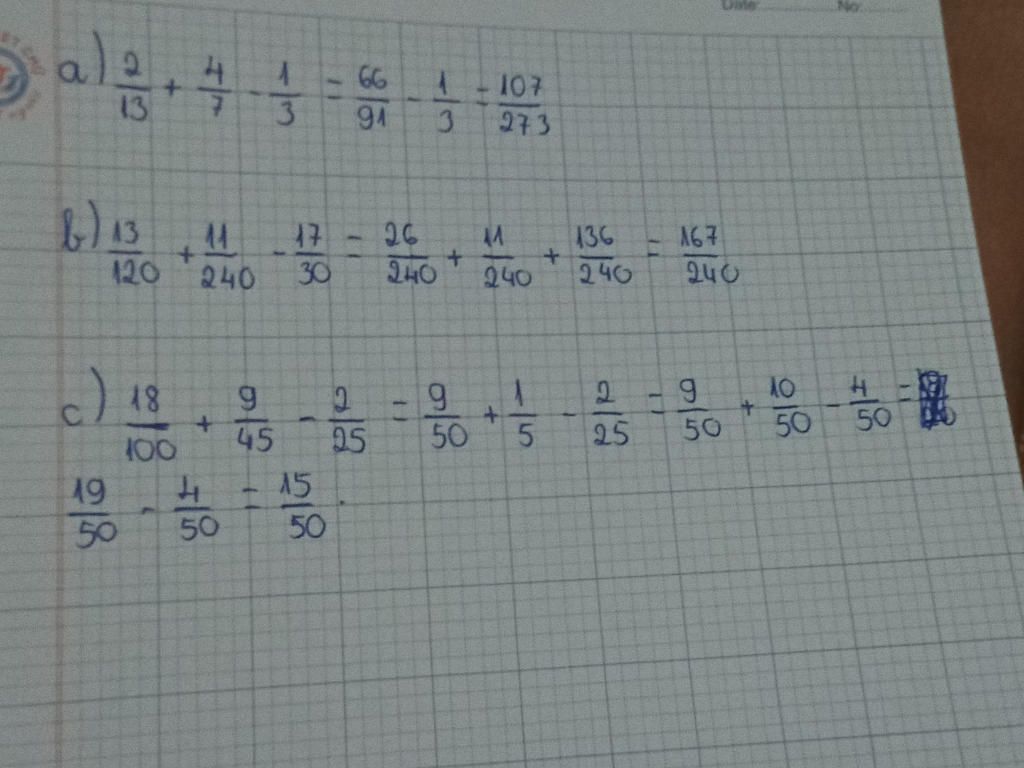 Date: No:
a) 2/13 + 4/7 - 1/3 = 66/91 - 1/3 = 107/273
b) 13/120 + 11/240 - 17/30 = 26/240 + 11/240 + 136/240 = 167/240
c) 18/100 + 9/45 - 2/25 = 9/50 + 1/5 - 2/25 = 9/50 + 10/50 - 4/50 =
19/50 - 4/50 = 15/50.